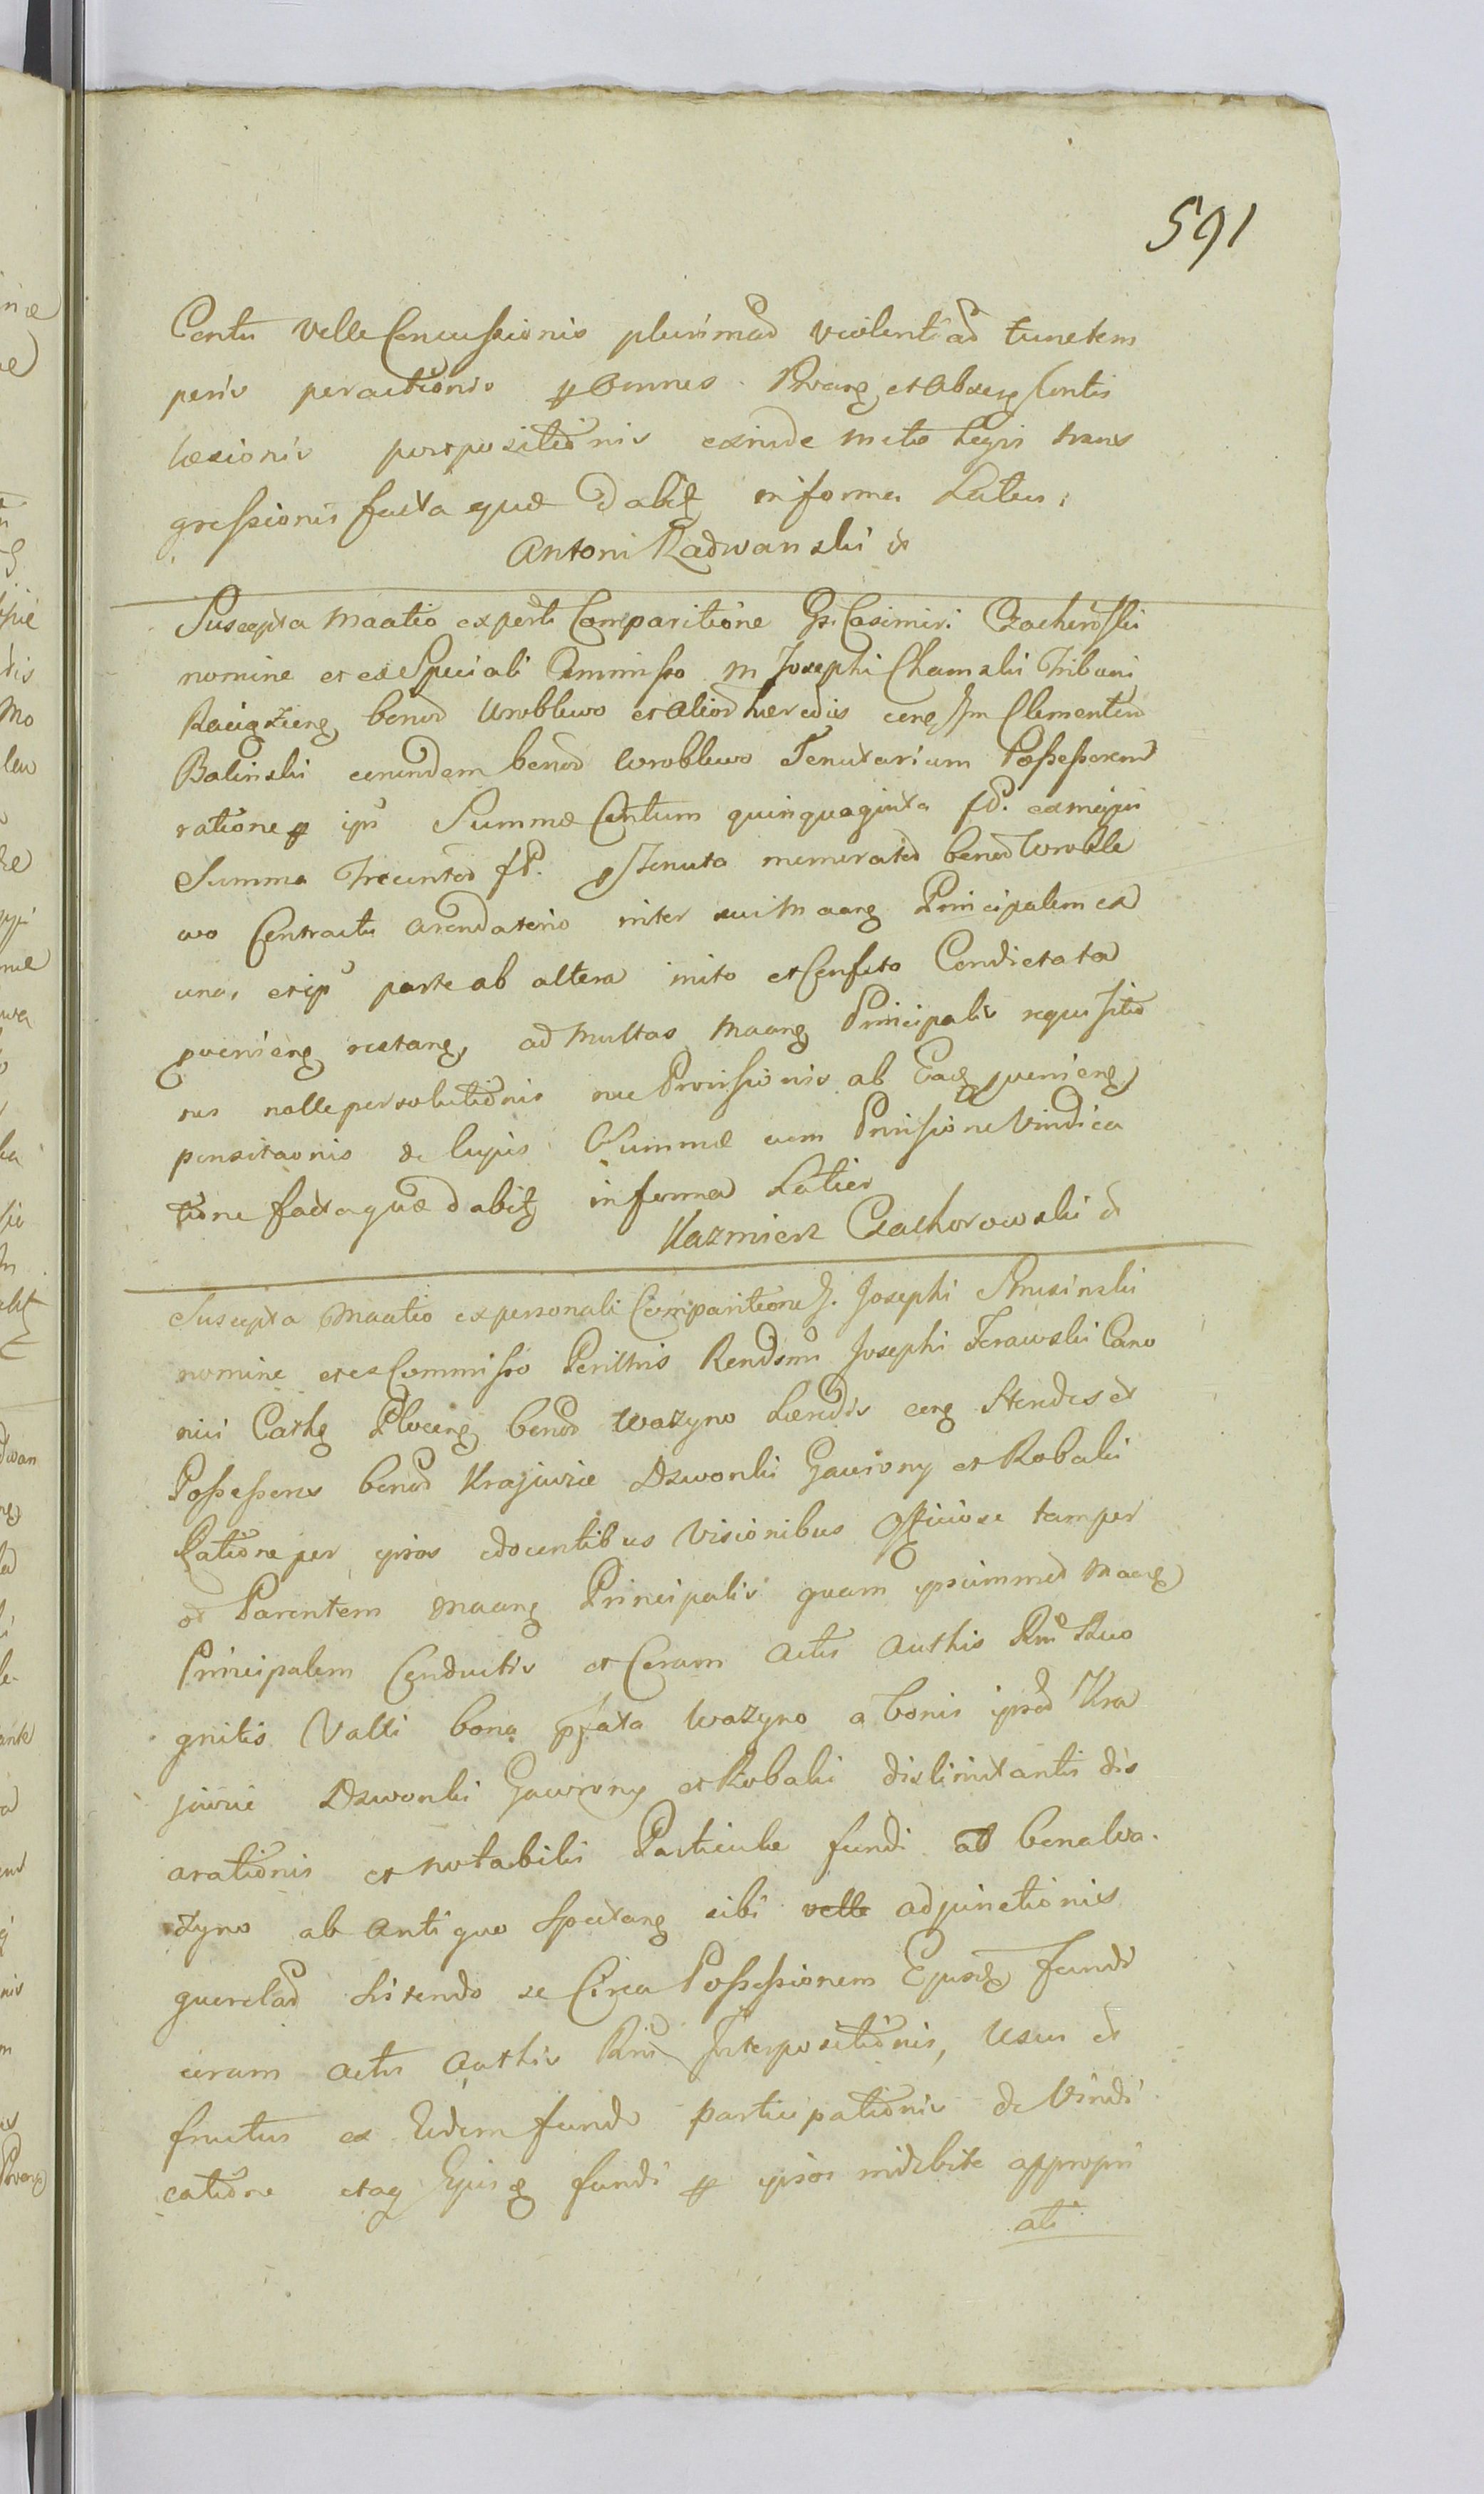 591
Contu velle Concussionis plurimad violentiad tunctem
peris peractionis pp Omnes. Pivang et Abseng Contis
læsionis postpositionis exinde metis Legis trans
gressionis facta quæ dabit in forma Latius
Antoni Radwanski
Suscepta Maatio ex perti Comparitione Gsi Casimiri Czachorowski
nomine et ex Speciali Commisso M Josephi Chamski Tribuni
Raciąziens bonod Wroblewo et aliod hæredis cong Jm Clementem
Balinski eorundem bonod Wroblewo Tenutarium Possessorem
ratione pp ips Summæ Centum quinquaginta fp. ex majori
Summa Trecentod fp. p Tenuta memoratod bonod Wroble
wo Contractu arendatorio inter sui Maang Principalem ex
una, et ips parte ab altera inito et Confecto Condictata
proveniens restang, ad multas Maang Principalis requisitio
nes nolle persolutionis nec Provisionis ab Eade proveniens
pensitaonis de cujus Summæ cum Provisione Vindica
tione facta quæ dabit in forma Latior
Kazmierz Czachorowski
Suscepta Maatio ex personali Comparitione G. Josephi Smusinski
nomine et ex Commisso Perillris Rendsmi Josephi Zerawski Cano
nici Cathg Plocens bonod Wazyno Hæredis cong Hæredes et
Possessores bonod Krajewice Dzwonki Gawrony et Kobaki
Ratione per ipsos edocentibus Visionibus Officiose tam per
od Parentem Maang Principalis quam ipsummed Maang
Principalem Conductis et Coram Actis Authis Rni Reco
gnitis Valli bona pfata Wazyno a bonis ipsod Kra
jewie Dzwonki Gawrony et Kobaki dislimitantis dis
arationis et notabilis Particulæ fundi ad bona Wa
zyno ab antiquo spectang sibi velle adjunctionis
querelad sistendo se Circa Possessionem Ejusdg fundi
coram actis Authis Rni Interpositionis, Usus et
fructus ex Eodem fundo participationis de Vindi
catione etag Ejusdg fundi pp ipsos indebite appropri
ati